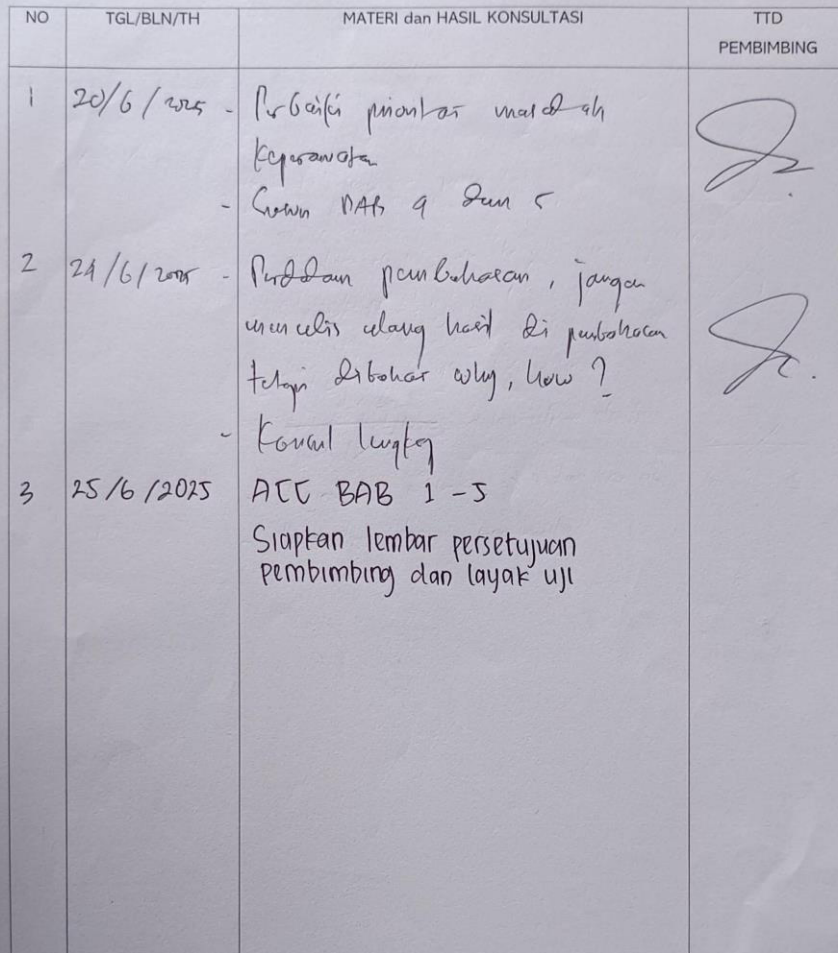 NO TGL/BLN/TH MATERI dan HASIL KONSULTASI TTD
PEMBIMBING
1 20/6/2025 - Perbaiki prioritas masalah
keperawatan
- Susun BAB 4 dan 5
2 24/6/2025 - Perdalam pembahasan, jangan
menulis ulang hasil di pembahasan
tetapi dibahas why, how?
- Konsul lengkap
3 25/6/2025 ACC BAB 1-5
Siapkan lembar persetujuan
pembimbing dan layak uji